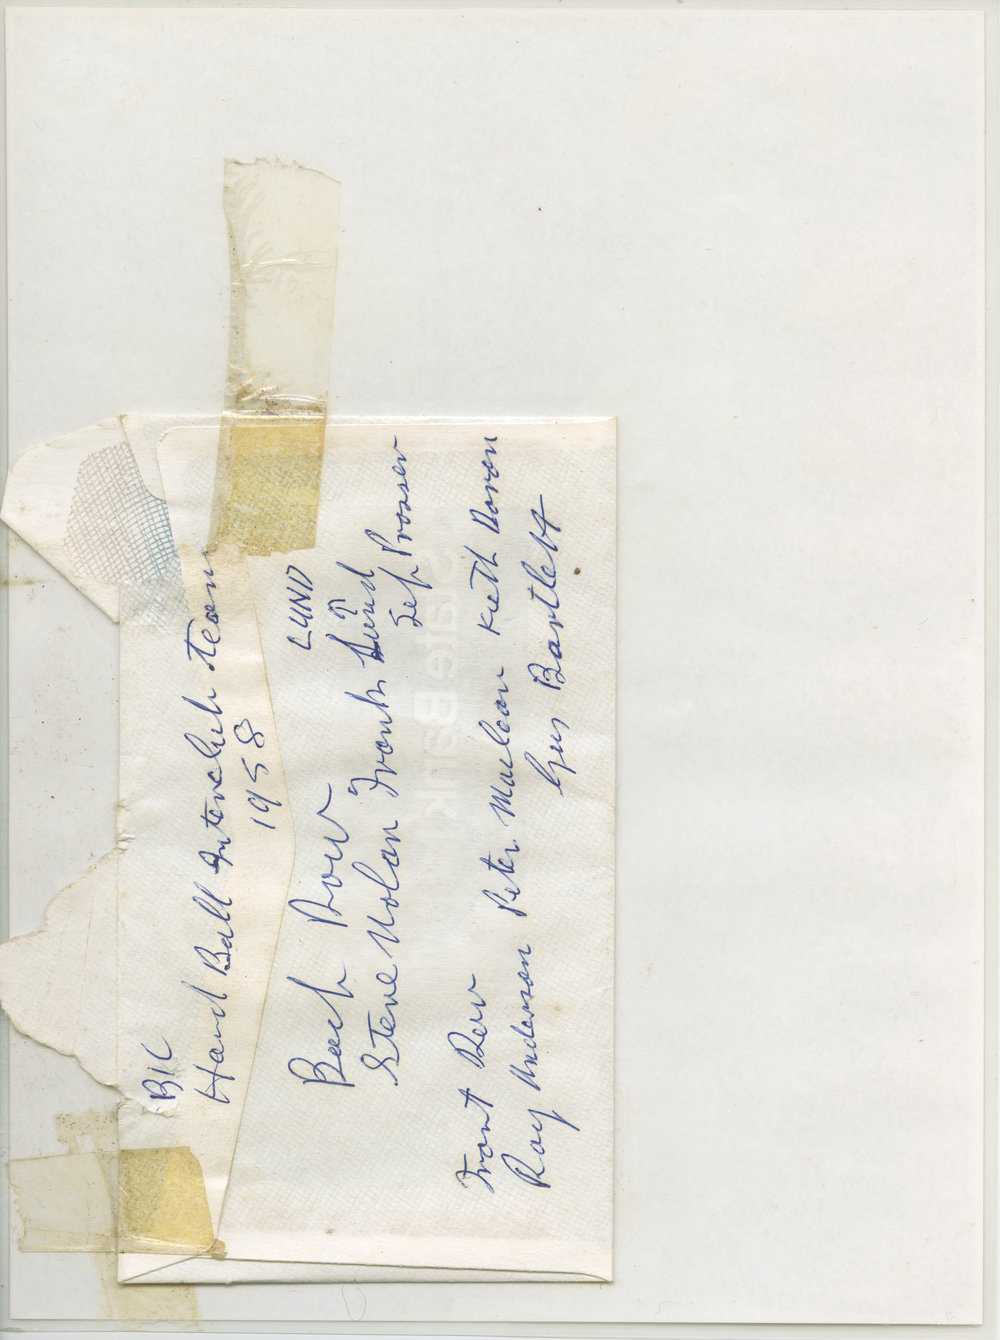 BIC
Hand Ball Interclub team
1958
LUND
Back Row
Steve Nolan Frank Lund
Sep Prosser
Front Row
Ray Anderson Peter Maclean Kieth Doran
Gus Bartlett